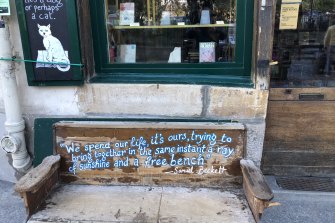 or perhaps
a cat.
"We spend our life, it's ours, trying to
bring together in the same instant a ray
of sunshine and a free bench"
—Samuel Beckett